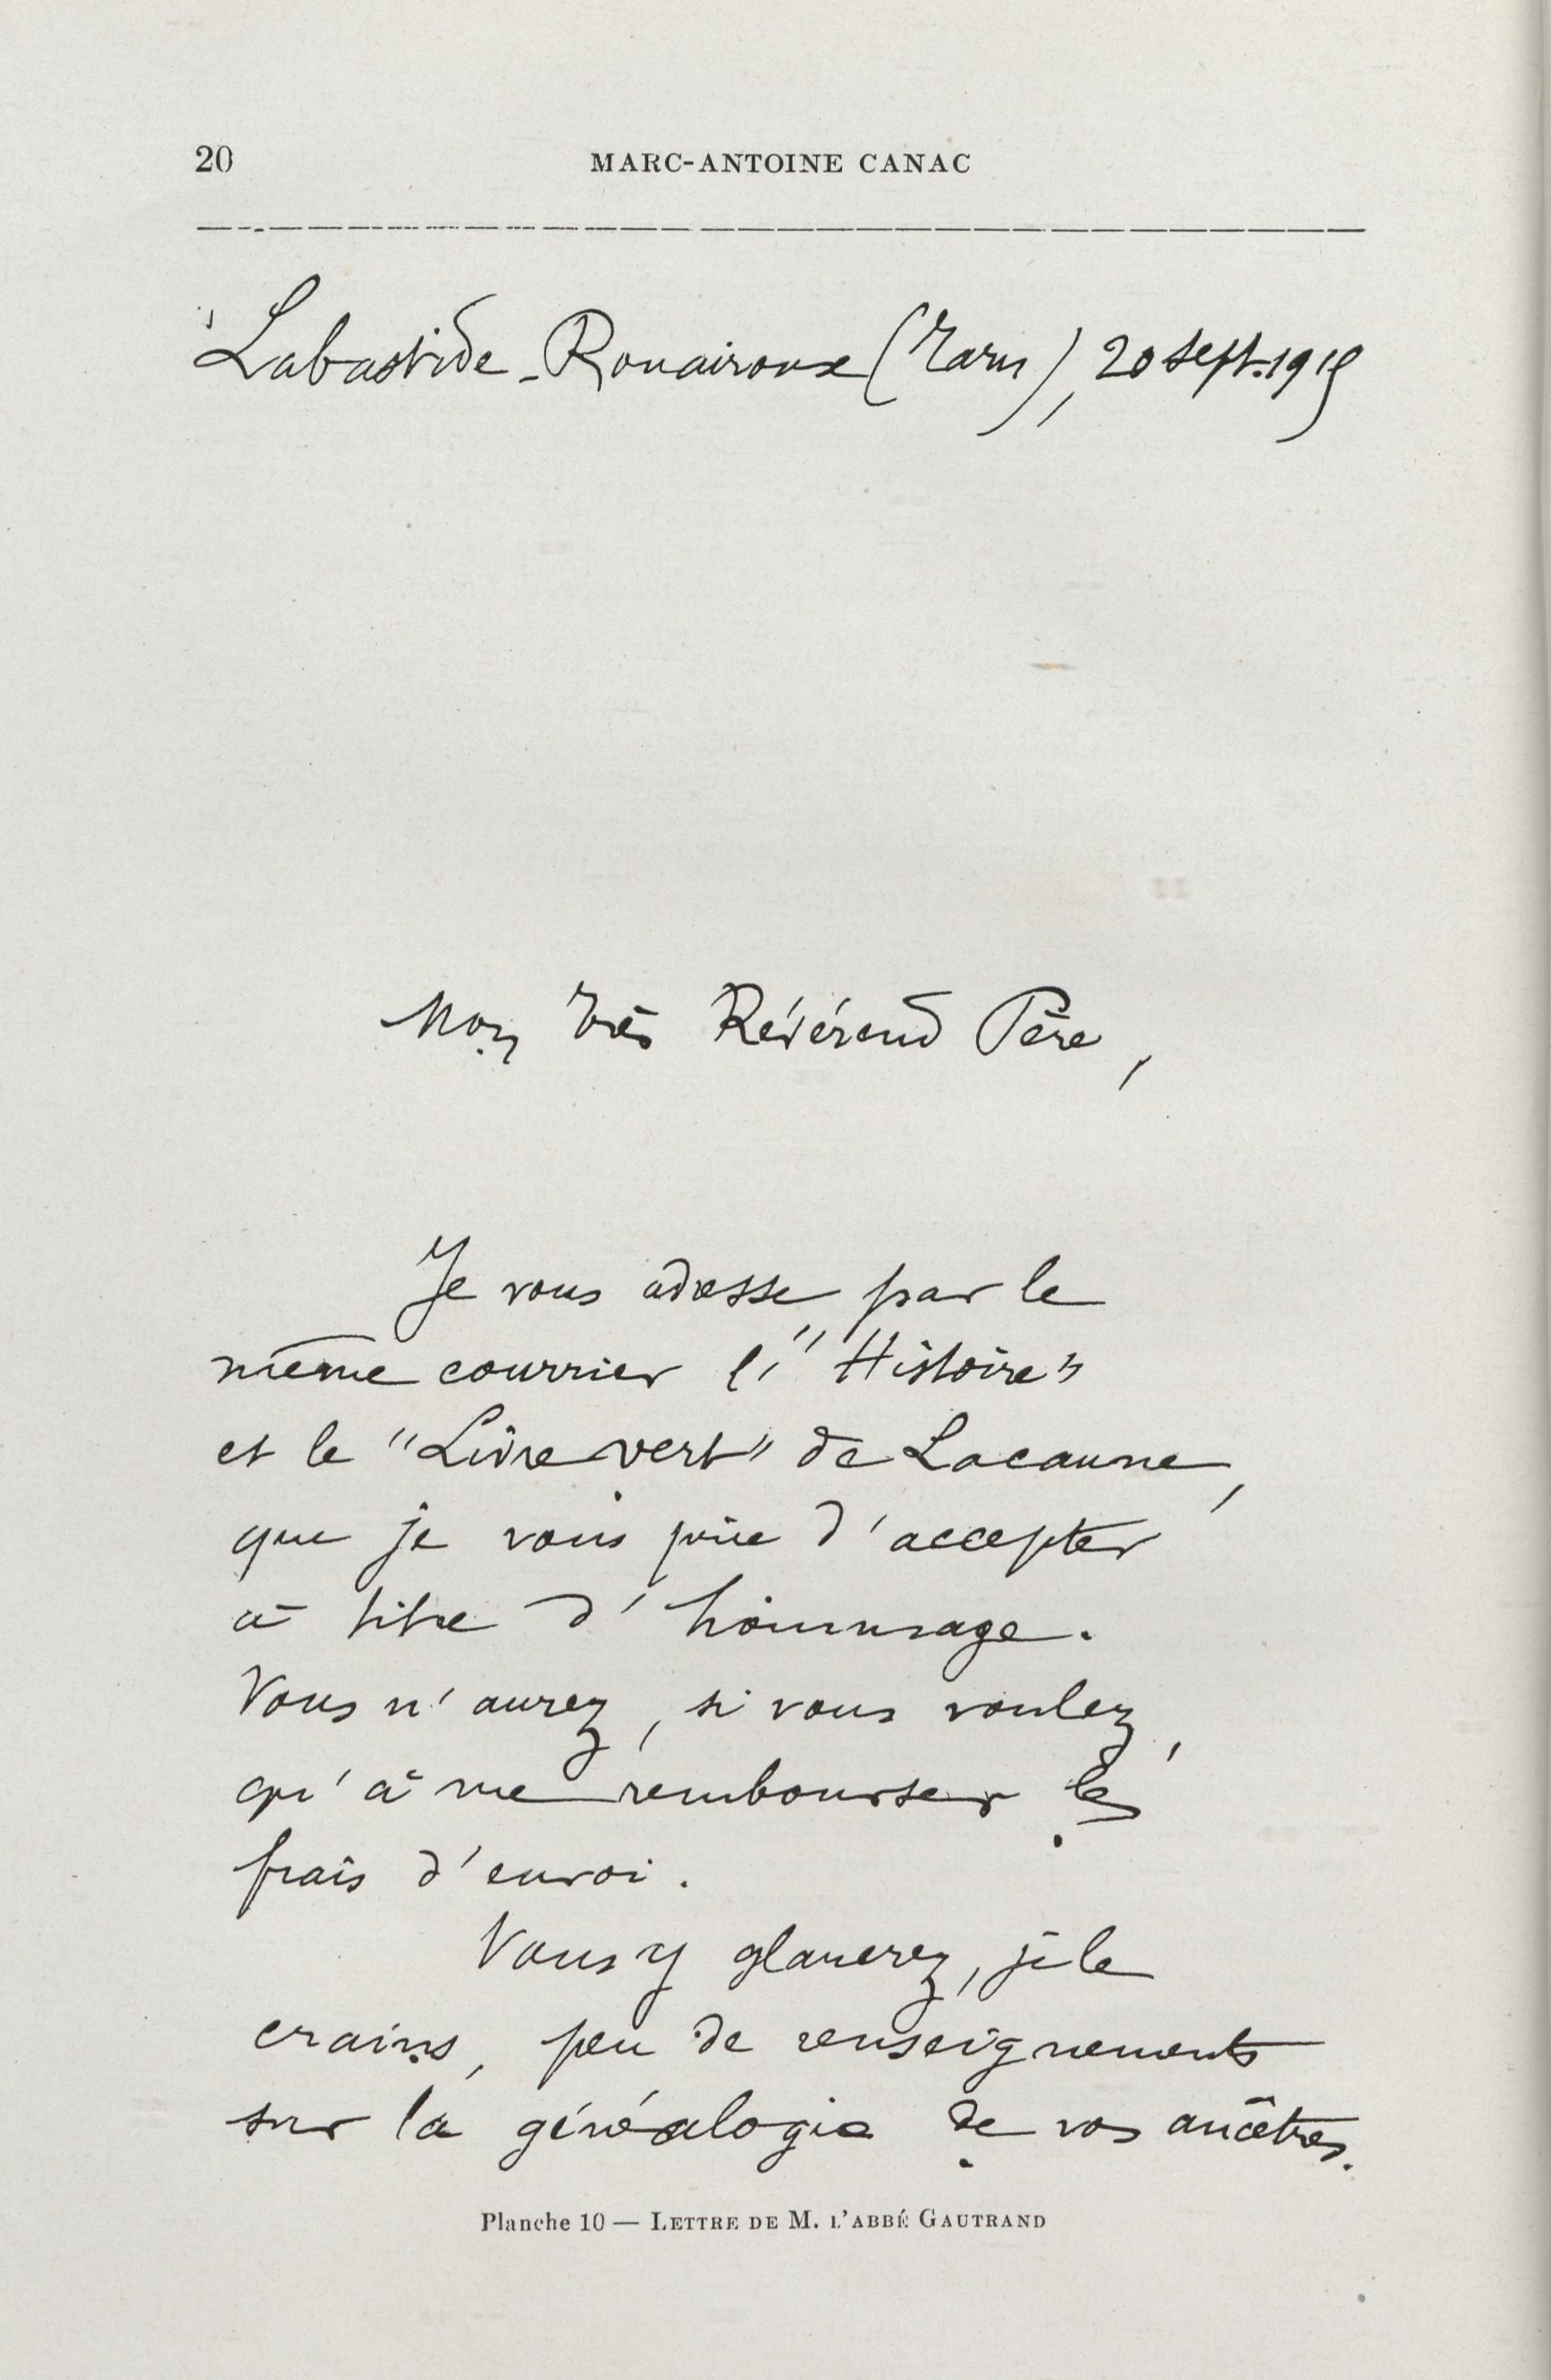 20
MARC-ANTOINE CANAC
Labastide-Rouairoux (Tarn), 20 sept. 1919
Mon très Révérend Père,
Je vous adresse par le
même courrier l'"Histoire"
et le "Livre vert" de Lacaune,
que je vous prie d'accepter
à titre d'hommage.
Vous n'aurez, si vous voulez,
qu'à me rembourser les
frais d'envoi.
Vous y glanerez, je le
crains, peu de renseignements
sur la généalogie de vos ancêtres.
Planche 10 — LETTRE DE M. L'ABBÉ GAUTRAND